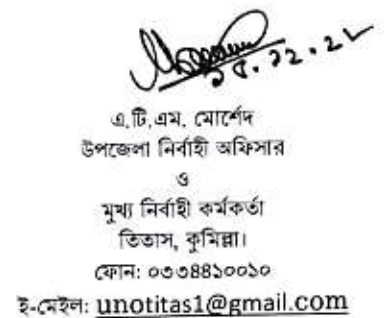 এ.টি.এম. মোর্শেদ
উপজেলা নির্বাহী অফিসার
ও
মুখ্য নির্বাহী কর্মকর্তা
তিতাস, কুমিল্লা।
ফোন: ০৩৩৪৪১০০১০
ই-মেইল: unotitas1@gmail.com